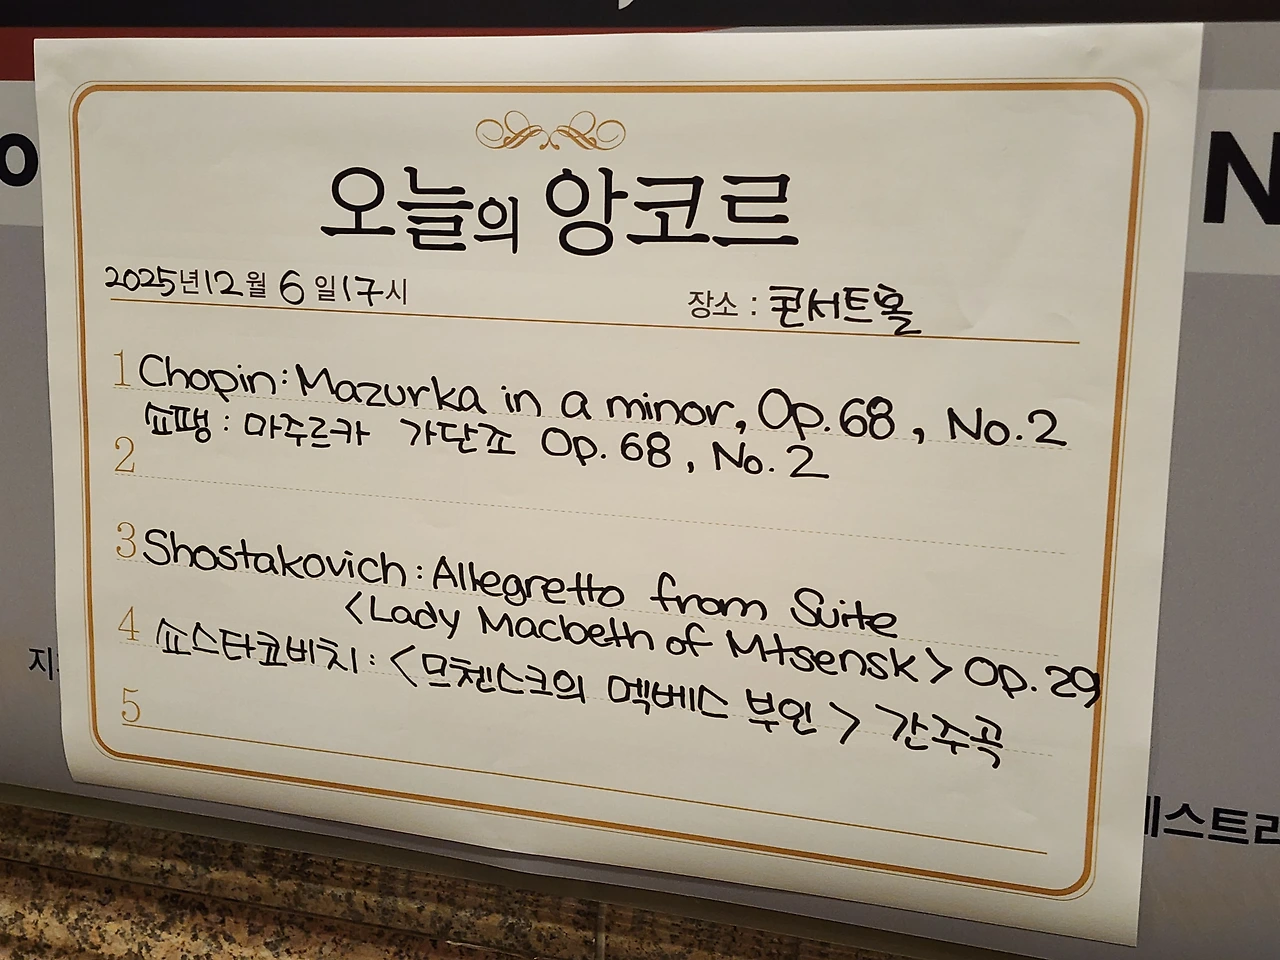 오늘의 앙코르
2025년 12월 6일 17시 장소 : 콘서트홀
1 Chopin : Mazurka in a minor, Op. 68, No. 2
쇼팽 : 마주르카 가단조 Op. 68, No. 2
2
3 Shostakovich : Allegretto from Suite
<Lady Macbeth of Mtsensk> Op. 29
4 쇼스타코비치 : <므첸스크의 멕베스 부인> 간주곡
5
지
N
스트라